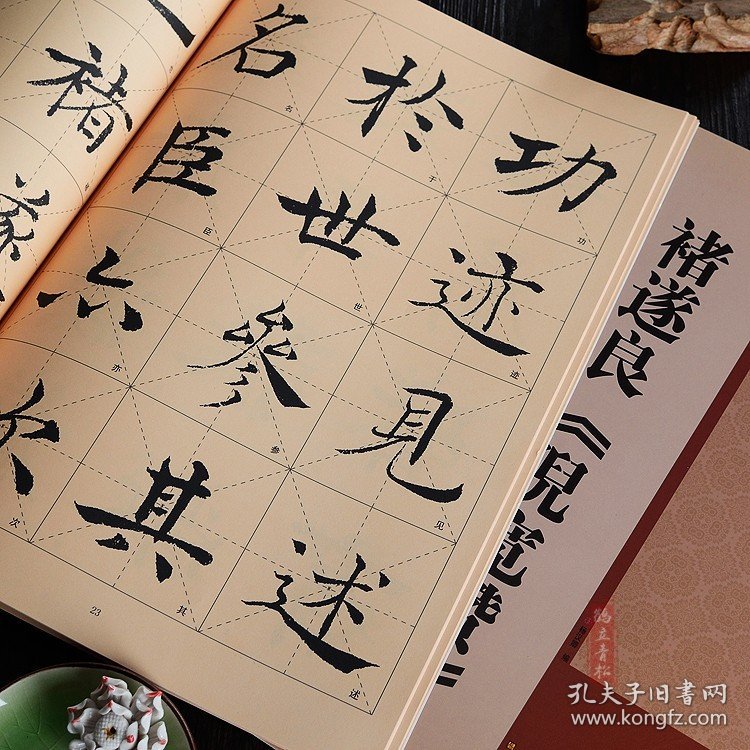 功迹見述
功迹见述
於世參其
于世参其
名臣亦次
名臣亦次
23
褚遂
褚遂良《倪宽赞》
鹤立青松
孔夫子旧书网
www.kongfz.com